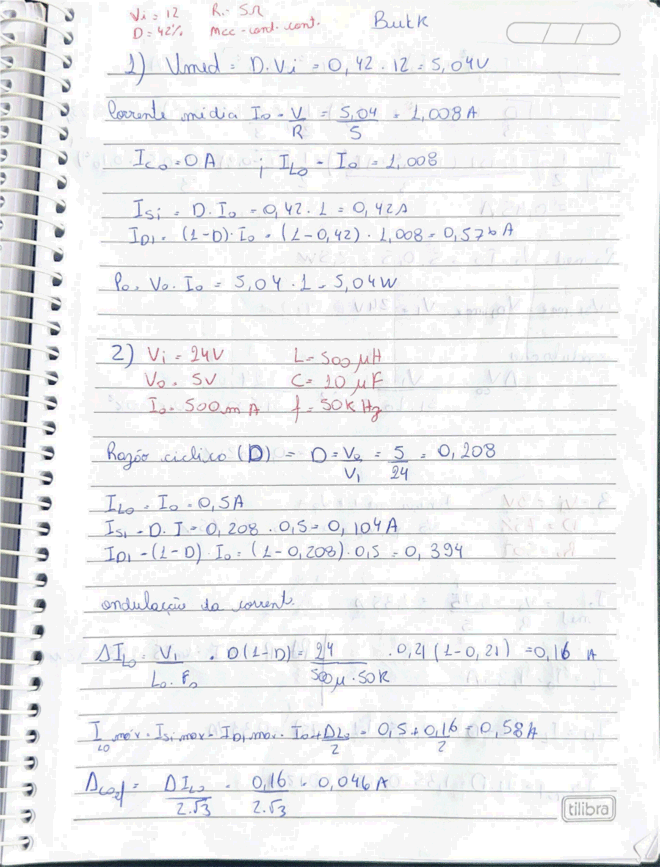 Vi = 12 R. 5Ω Bulk
D = 42% Mcc - cond. cont.
1) Vmed = D.Vi = 0,42 . 12 = 5,04V
Corrente média Io = V/R = 5,04/5 = 1,008A
Ico = 0A ; ILo = Io = 1,008
ISi = D.Io = 0,42 . 1 = 0,42A
ID1 = (1-D).Io = (1-0,42) . 1,008 = 0,576A
Po = Vo.Io = 5,04 . 1 = 5,04W
2) Vi = 24V L = 500 μH
Vo = 5V C = 10 μF
Io = 500m A f = 50K Hz
Razão ciclico (D) = D = Vo/Vi = 5/24 = 0,208
ILo = Io = 0,5A
IS1 = D.I = 0,208 . 0,5 = 0,104A
ID1 = (1-D).Io = (1-0,208).0,5 = 0,394
ondulação da corrent.
ΔILo = Vi/Lo.Fo . D(1-D) = 24/500μ.50K . 0,21(1-0,21) = 0,16 A
ILo máx = ISi max = ID1 max = Io + ΔLo/2 = 0,5 + 0,16/2 = 0,58A
Δcoef = ΔILo/2.√3 = 0,16/2.√3 = 0,046A
tilibra